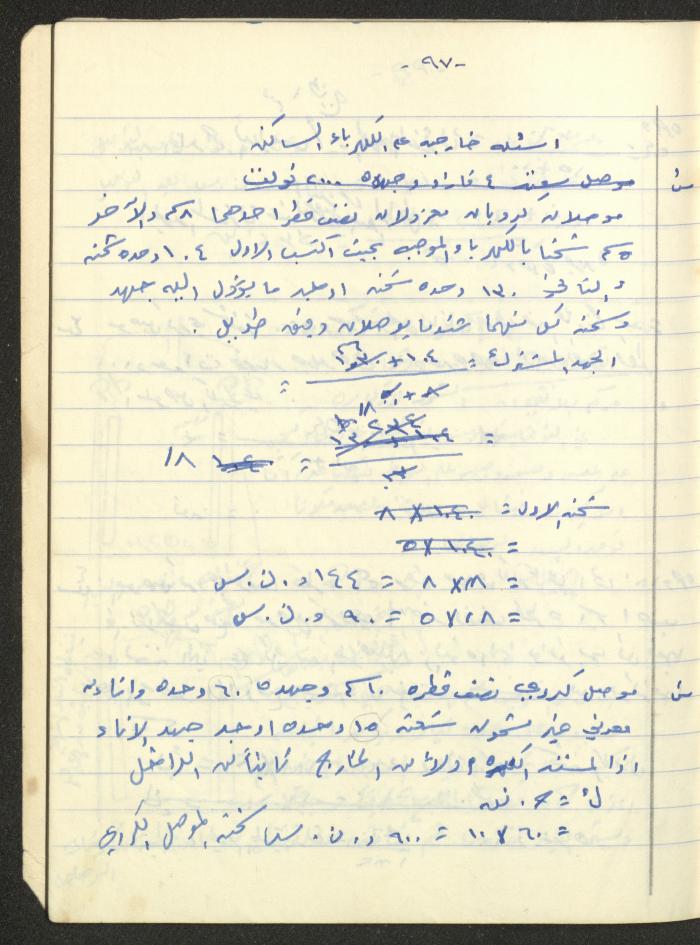 -٩٧-
اسئله خارجيه عن الكهرباء الساكنه
س موصل سعته ٤ فاراد وجهده ٢٠٠٠ فولت
موصلان كرويان معزولان نصف قطر احدهما ٨سم والآخر
٥سم شحنا بالكهرباء الموجبه بحيث اكتسب الاول ١٠٤ وحده شحنه
والثاني ١٣٠ وحده شحنه اوجد ما يؤول اليه جهد
وشحنة كل منهما عندما يوصلان بسلك رفيع طويل .
الجهد المشترك = ١٠٤ + ١٣٠
٨ + ٥ =
= = ١٨
شحنة الاول = ١٠٤ × ٨
= ١٠٤ × ٥
= ١٨ × ٨ = ١٤٤ و.ك.س
= ١٨ × ٥ = ٩٠ و.ك.س
س موصل كروي نصف قطره ١٠سم وجهده ٦٠ وحده واناء
معدني غير مشحون سعته ١٥ وحده اوجد جهد الاناء
اذا لمسته الكره اولا من الخارج ثانيا من الداخل
ك = ج . نق
= ٦٠ × ١٠ = ٦٠٠ و.ك.س شحنة الموصل الكروي